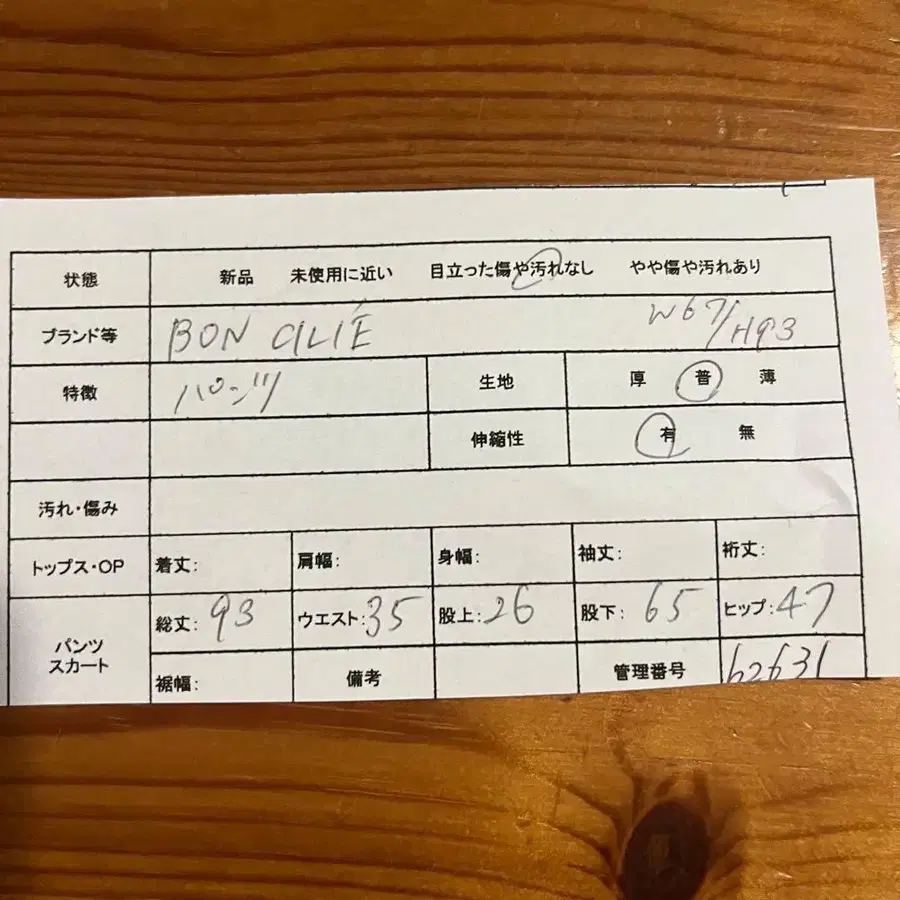 状態 新品 未使用に近い 目立った傷や汚れなし やや傷や汚れあり
ブランド等 BON CILIÉ W67/H93
特徴 パンツ 生地 厚 普 薄
伸縮性 有 無
汚れ・傷み
トップス・OP 着丈: 肩幅: 身幅: 袖丈: 裄丈:
パンツ スカート 総丈: 93 ウエスト: 35 股上: 26 股下: 65 ヒップ: 47
裾幅: 備考 管理番号 62631